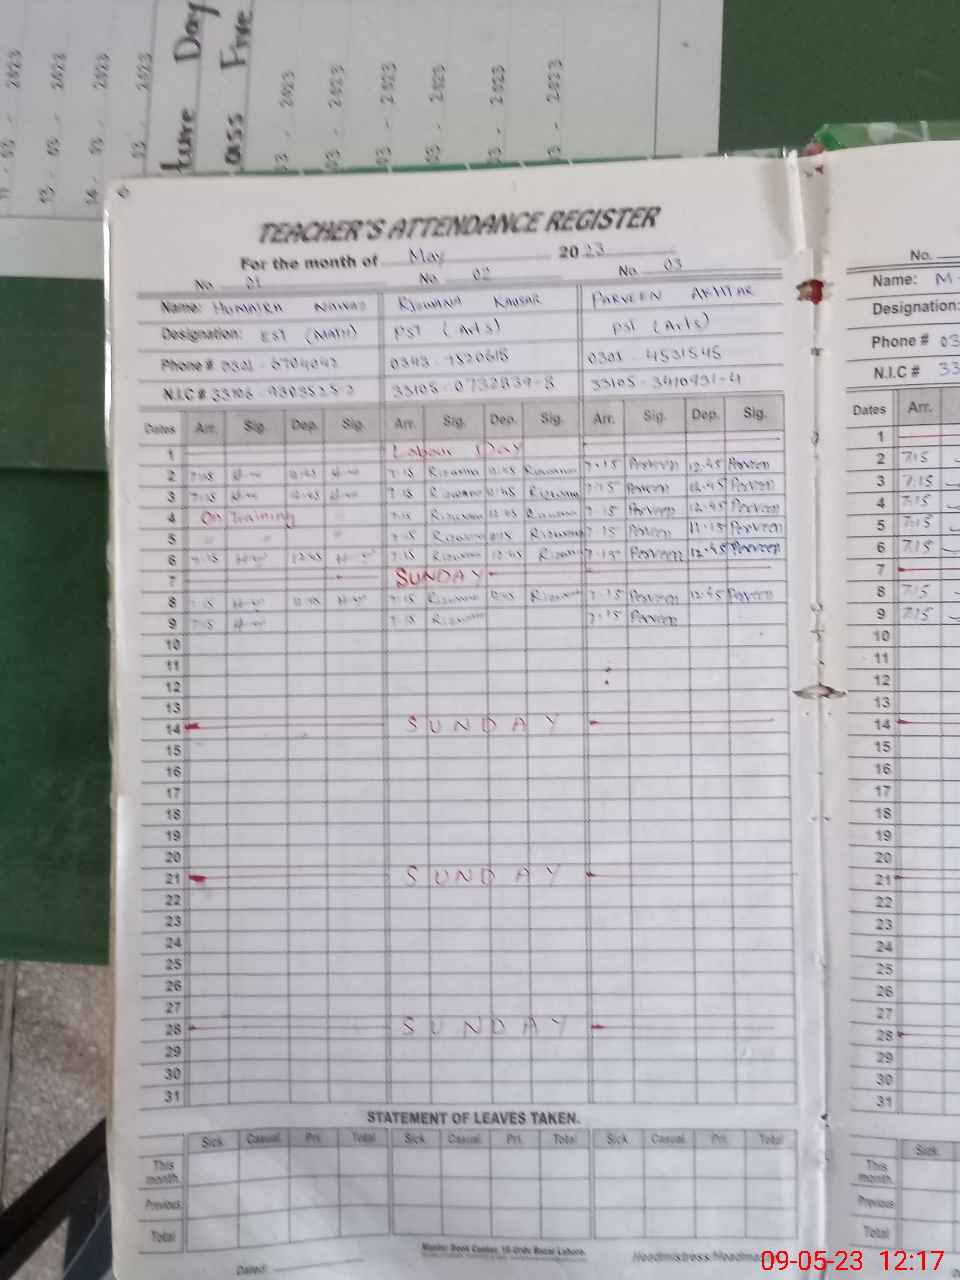 2023
2023
2023
2023
Day
Five
2023
2023
2023
2023
2023
2023
TEACHER'S ATTENDANCE REGISTER
For the month of May 2023
No. 01 No. 02 No. 03
Name: HUMAIRA NAWAZ RIZWANA KAUSAR PARVEEN AKHTAR
Designation: EST (MATH) PST (Arts) PST (Arts)
Phone # 0301-6704042 0343-7520618 0301-4531545
N.I.C # 33106-9303525-2 33105-0732839-8 33105-3410931-4
Dates Arr. Sig. Dep. Sig. Arr. Sig. Dep. Sig. Arr. Sig. Dep. Sig.
1 Labour Day
2 7:15 12:45 7:15 Rizwana 12:45 Rizwana 7:15 Parveen 12:45 Parveen
3 7:15 12:45 7:15 Rizwana 12:45 Rizwana 7:15 Parveen 12:45 Parveen
4 On Training 7:15 Rizwana 12:45 Rizwana 7:15 Parveen 12:45 Parveen
5 7:15 Rizwana Rizwana 7:15 Parveen 11:15 Parveen
6 7:15 12:45 7:15 Rizwana 12:45 Rizwana 7:15 Parveen 12:45 Parveen
7 SUNDAY
8 7:15 12:45 7:15 Rizwana 12:45 Rizwana 7:15 Parveen 12:45 Parveen
9 7:15 7:15 Rizwana 7:15 Parveen
10
11
12
13
14 SUNDAY
15
16
17
18
19
20
21 SUNDAY
22
23
24
25
26
27
28 SUNDAY
29
30
31
STATEMENT OF LEAVES TAKEN.
Sick Casual Pri. Total Sick Casual Pri. Total Sick Casual Pri. Total
This month.
Previous
Total
Book Center, Urdu Bazar Lahore.
Dated: Headmistress/
No.
Name: M
Designation:
Phone # 03
N.I.C # 33
Dates Arr.
1
2 7:15
3 7:15
4 7:15
5 7:15
6 7:15
7
8 7:15
9 7:15
10
11
12
13
14
15
16
17
18
19
20
21
22
23
24
25
26
27
28
29
30
31
Sick
This month.
Previous
Total
09-05-23 12:17